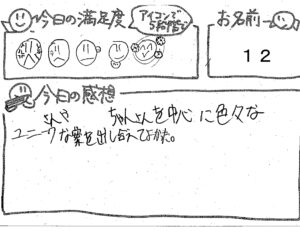 今日の満足度
アイコンで
5段階で
お名前
12
今日の感想
さんや ちゃんを中心に色々な
ユニークな案を出し合えてよかった。